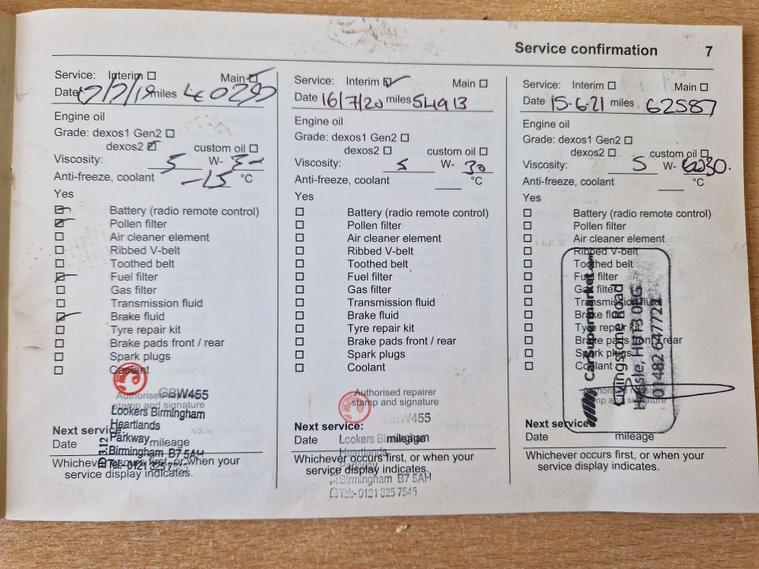 Service confirmation 7
Service: Interim ☐ Main ☑
Date miles
Engine oil
Grade: dexos1 Gen2 ☐
dexos2 ☑ custom oil ☐
Viscosity: 5 W-
Anti-freeze, coolant -15 °C
Yes
☑ Battery (radio remote control)
☑ Pollen filter
☐ Air cleaner element
☐ Ribbed V-belt
☐ Toothed belt
☑ Fuel filter
☐ Gas filter
☐ Transmission fluid
☑ Brake fluid
☐ Tyre repair kit
☐ Brake pads front / rear
☐ Spark plugs
☐ Coolant
GBW455
Authorised repairer
stamp and signature
Lookers Birmingham
Heartlands
Parkway
Birmingham B7 5AH
Tel:- 0121 325 7545
Next service:
Date mileage
Whichever occurs first, or when your
service display indicates.
Service: Interim ☑ Main ☐
Date 16/7/20 miles 54913
Engine oil
Grade: dexos1 Gen2 ☐
dexos2 ☐ custom oil ☐
Viscosity: 5 W- 30
Anti-freeze, coolant °C
Yes
☐ Battery (radio remote control)
☐ Pollen filter
☐ Air cleaner element
☐ Ribbed V-belt
☐ Toothed belt
☐ Fuel filter
☐ Gas filter
☐ Transmission fluid
☐ Brake fluid
☐ Tyre repair kit
☐ Brake pads front / rear
☐ Spark plugs
☐ Coolant
Authorised repairer
stamp and signature
GBW455
Next service:
Date mileage
Lookers Birmingham
Heartlands
Parkway
Birmingham B7 5AH
Tel:- 0121 325 7545
Whichever occurs first, or when your
service display indicates.
Service: Interim ☐ Main ☐
Date 15.6.21 miles 62587
Engine oil
Grade: dexos1 Gen2 ☐
dexos2 ☐ custom oil ☐
Viscosity: 5 W- 30.
Anti-freeze, coolant °C
Yes
☐ Battery (radio remote control)
☐ Pollen filter
☐ Air cleaner element
☐ Ribbed V-belt
☐ Toothed belt
☐ Fuel filter
☐ Gas filter
☐ Transmission fluid
☐ Brake fluid
☐ Tyre repair kit
☐ Brake pads front / rear
☐ Spark plugs
☐ Coolant
Authorised repairer
stamp and signature
CarSupermarket.com
Livingstone Road
Hessle, HU13 0EG
01482 647722
Next service:
Date mileage
Whichever occurs first, or when your
service display indicates.